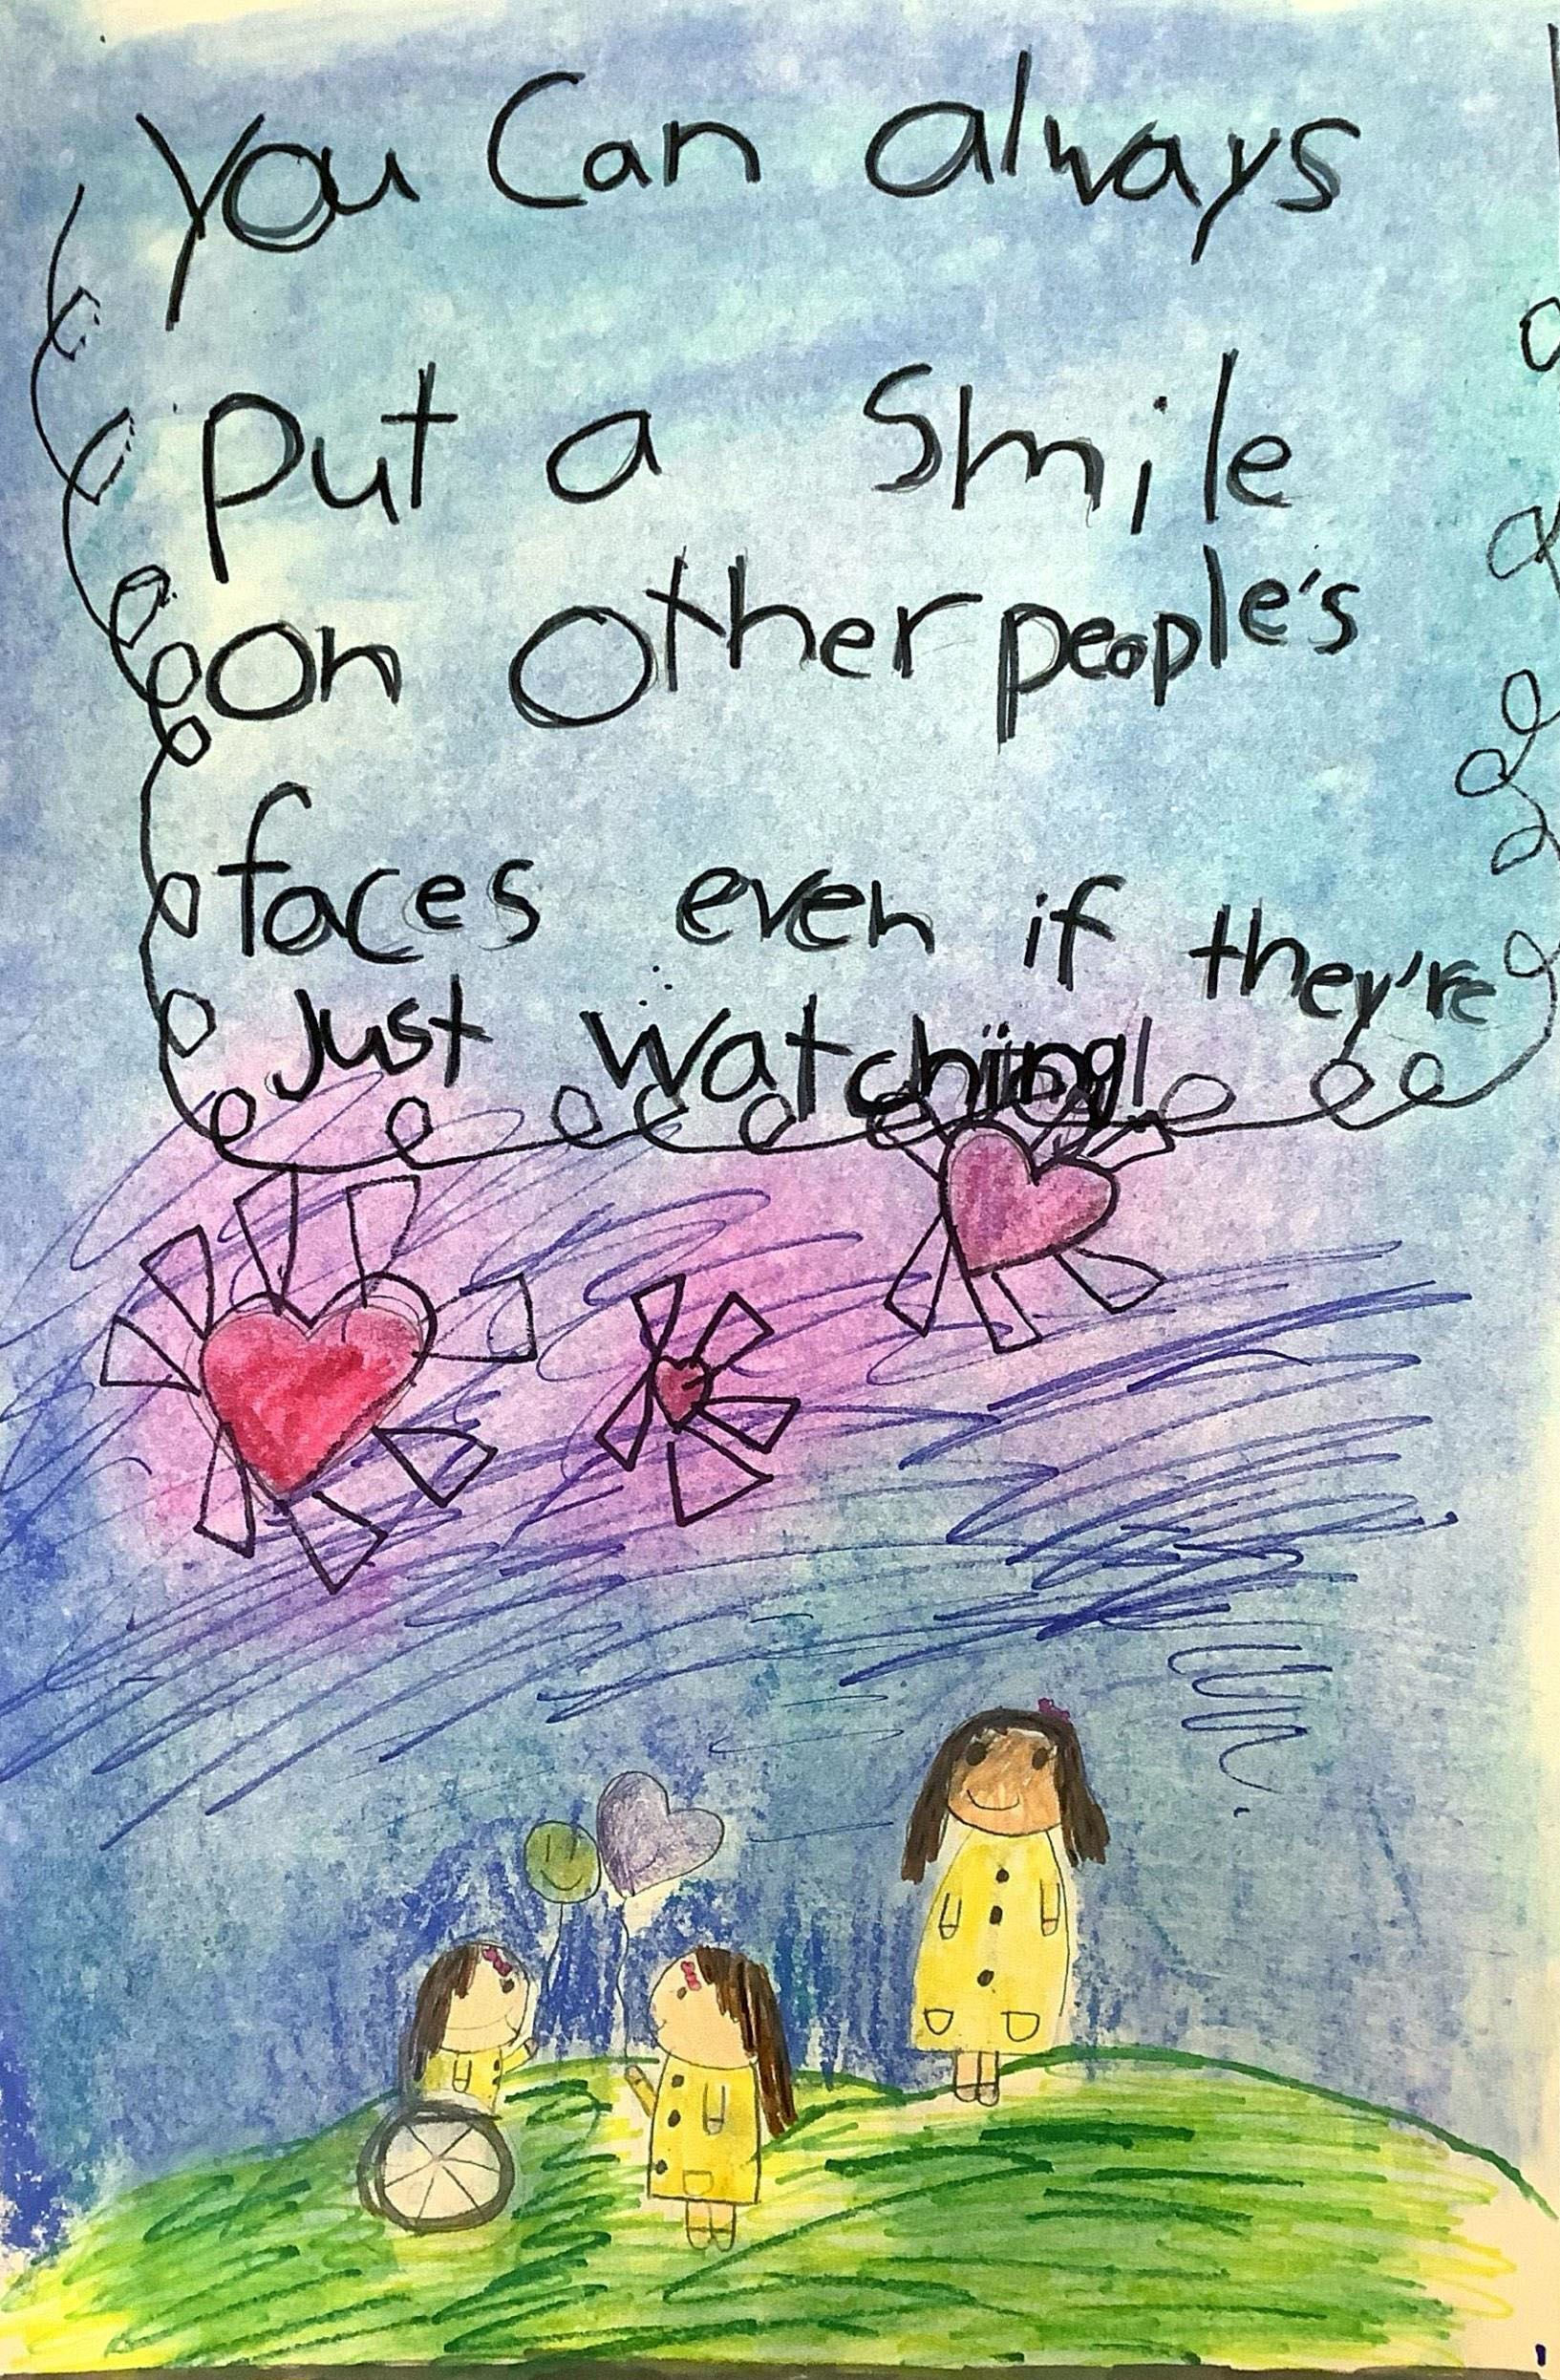 You Can always
Put a Smile
on other people's
faces even if they're
Just watching!